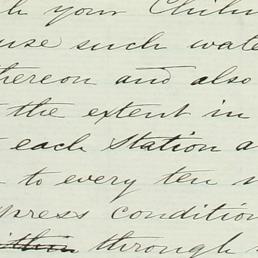 your
such
thereon and also
the extent in
each Station a
to every ten
press condition
through